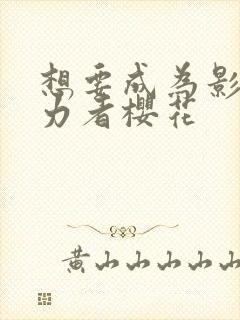 想要成为影
力者樱花
黄山山山山山